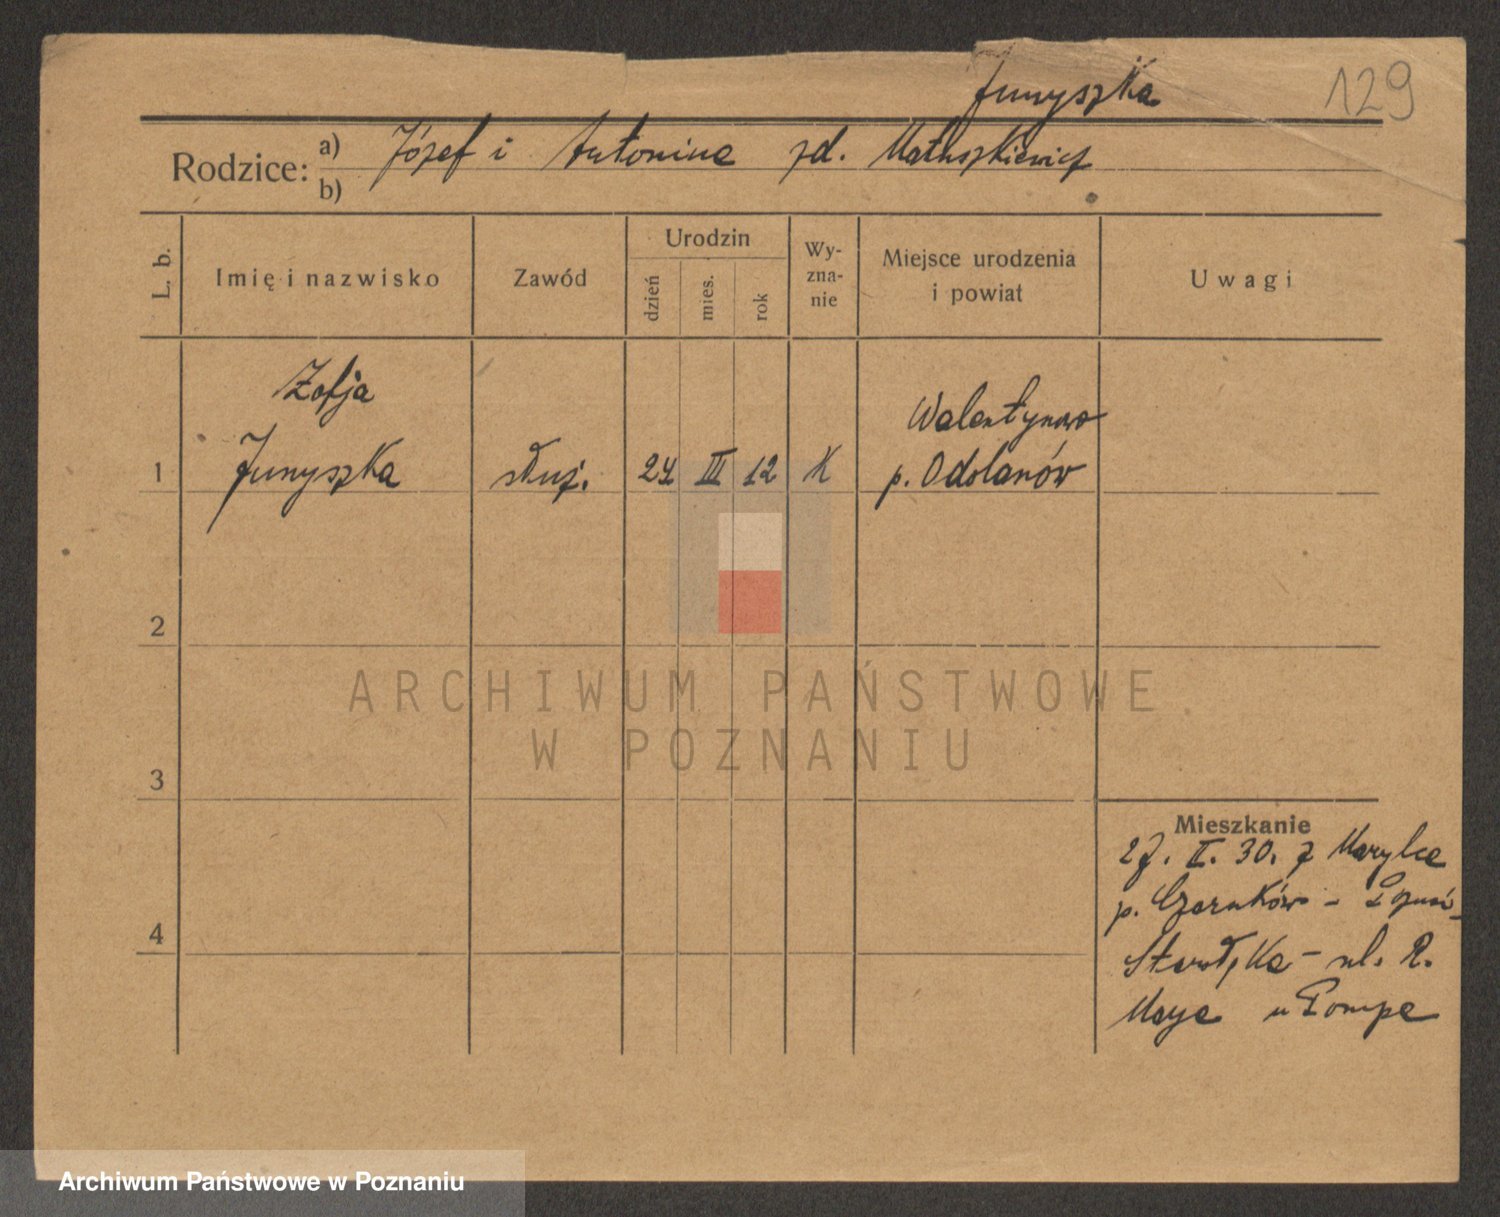 Junyszka 129
Rodzice: a) Józef i Antonina zd. Matuszkiewicz
b)
L. b. Imię i nazwisko Zawód Urodzin dzień mies. rok Wy-zna-nie Miejsce urodzenia i powiat Uwagi
Zofja
Walentynowo
1 Junyszka służ. 24 III 12 K p. Odolanów
2
ARCHIWUM PAŃSTWOWE
W POZNANIU
3
Mieszkanie
27. II. 30. z
p. Czarnków -
4
Starołęka - ul. R.
Maya u Pompe
Archiwum Państwowe w Poznaniu